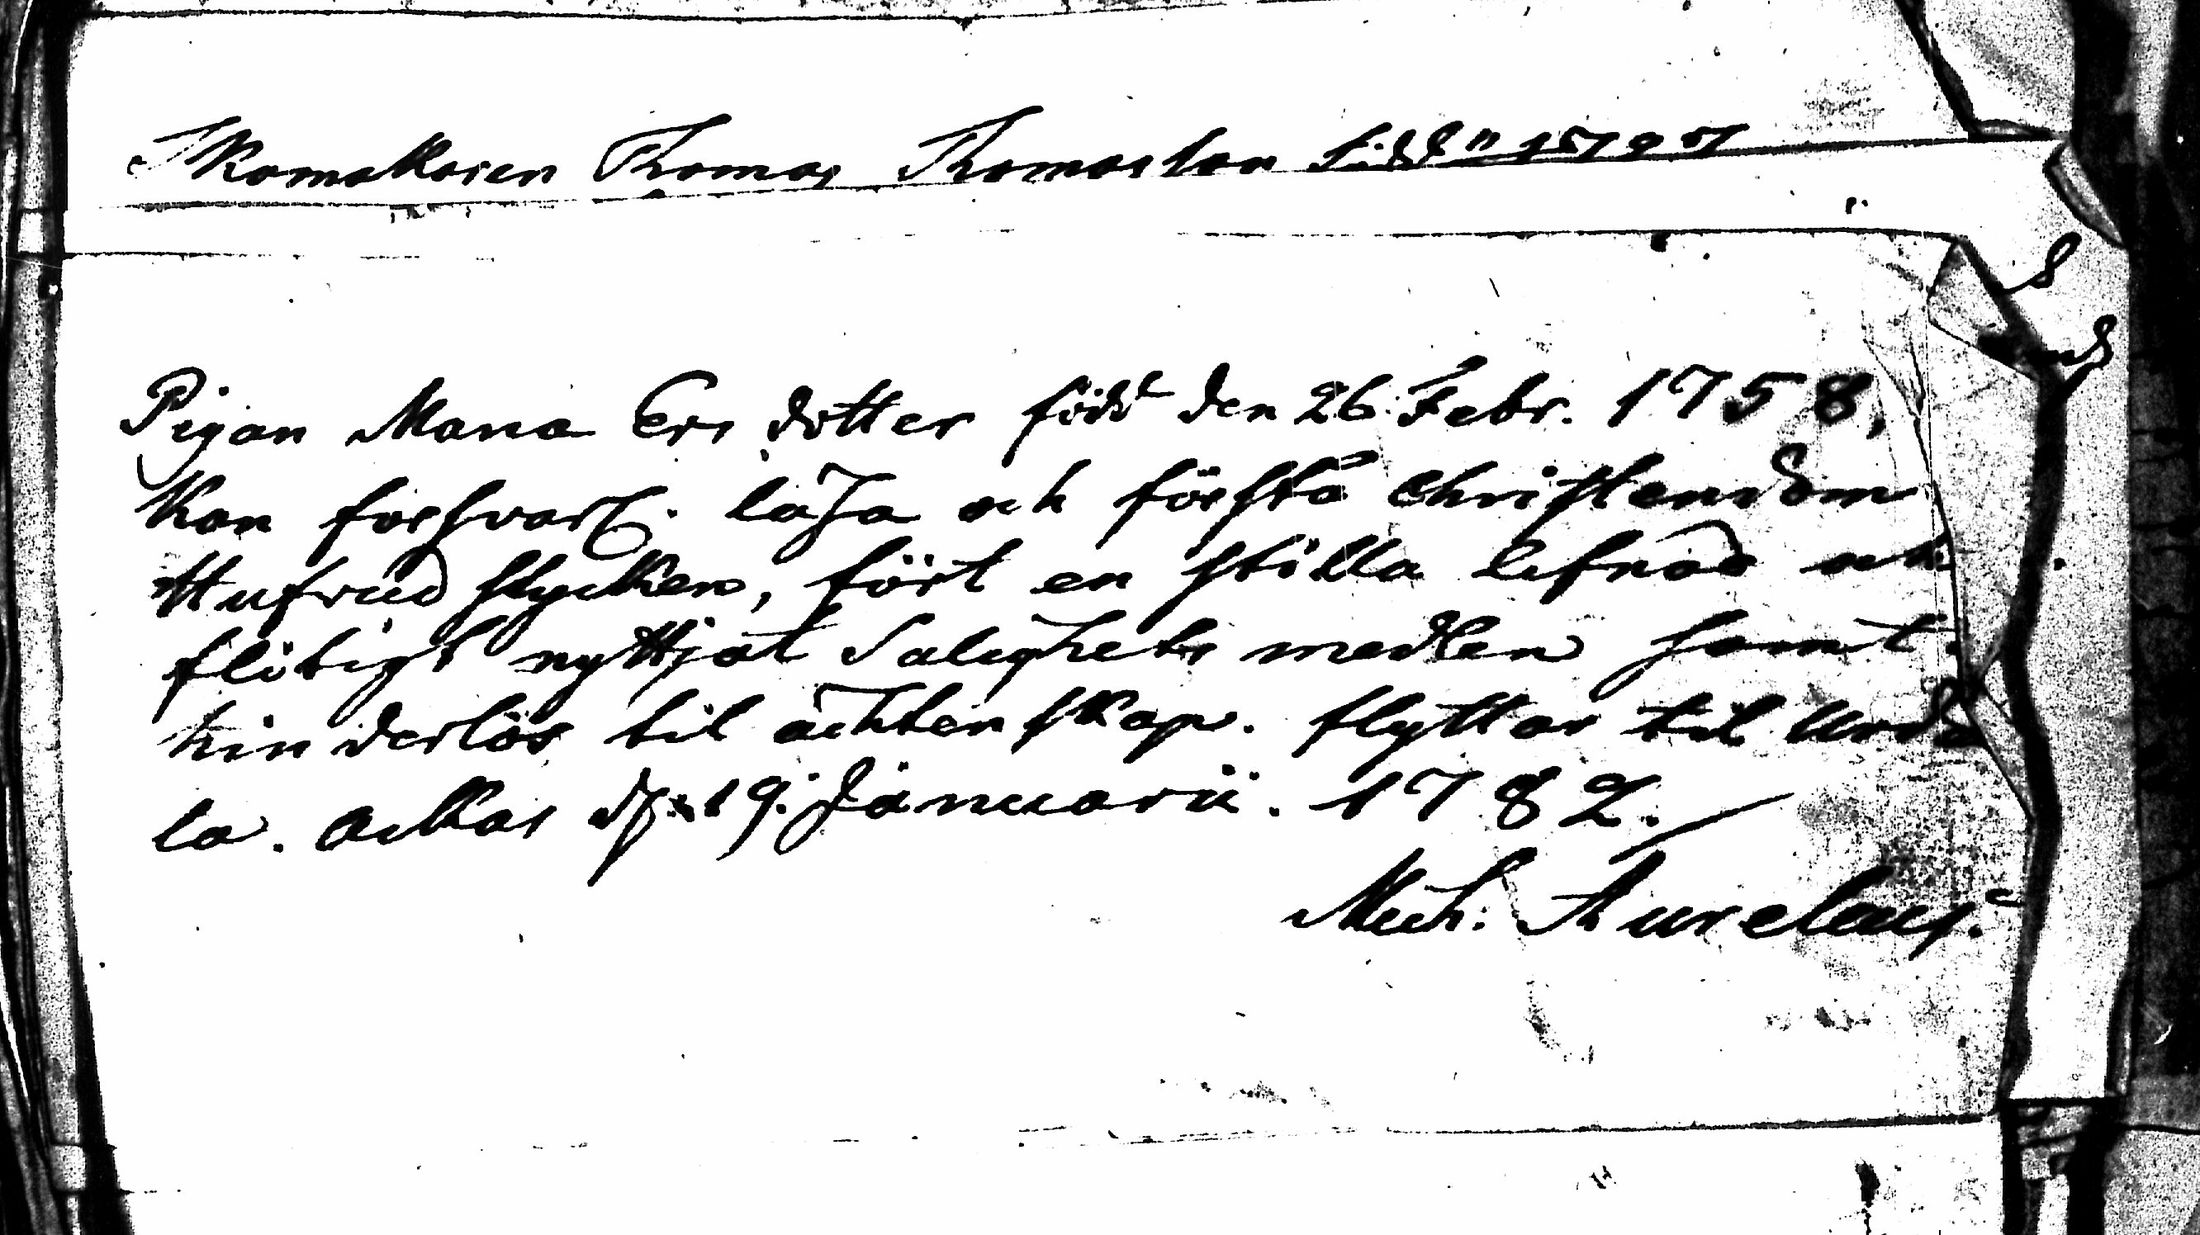 Skomakaren Thomas Thomasson
Pigan Maria Ers dotter född den 26. Febr. 1758,
kan forsvarl. läsa och förstå Christendom
Hufvud stycken, fört en stilla lefnad och
flitigt nyttjat Salighets medlen samt
hinderlös til ächtenskap. flyttar til Unda
la. Ackas d. 19. Januarii. 1782.
Mich. Aurelius.